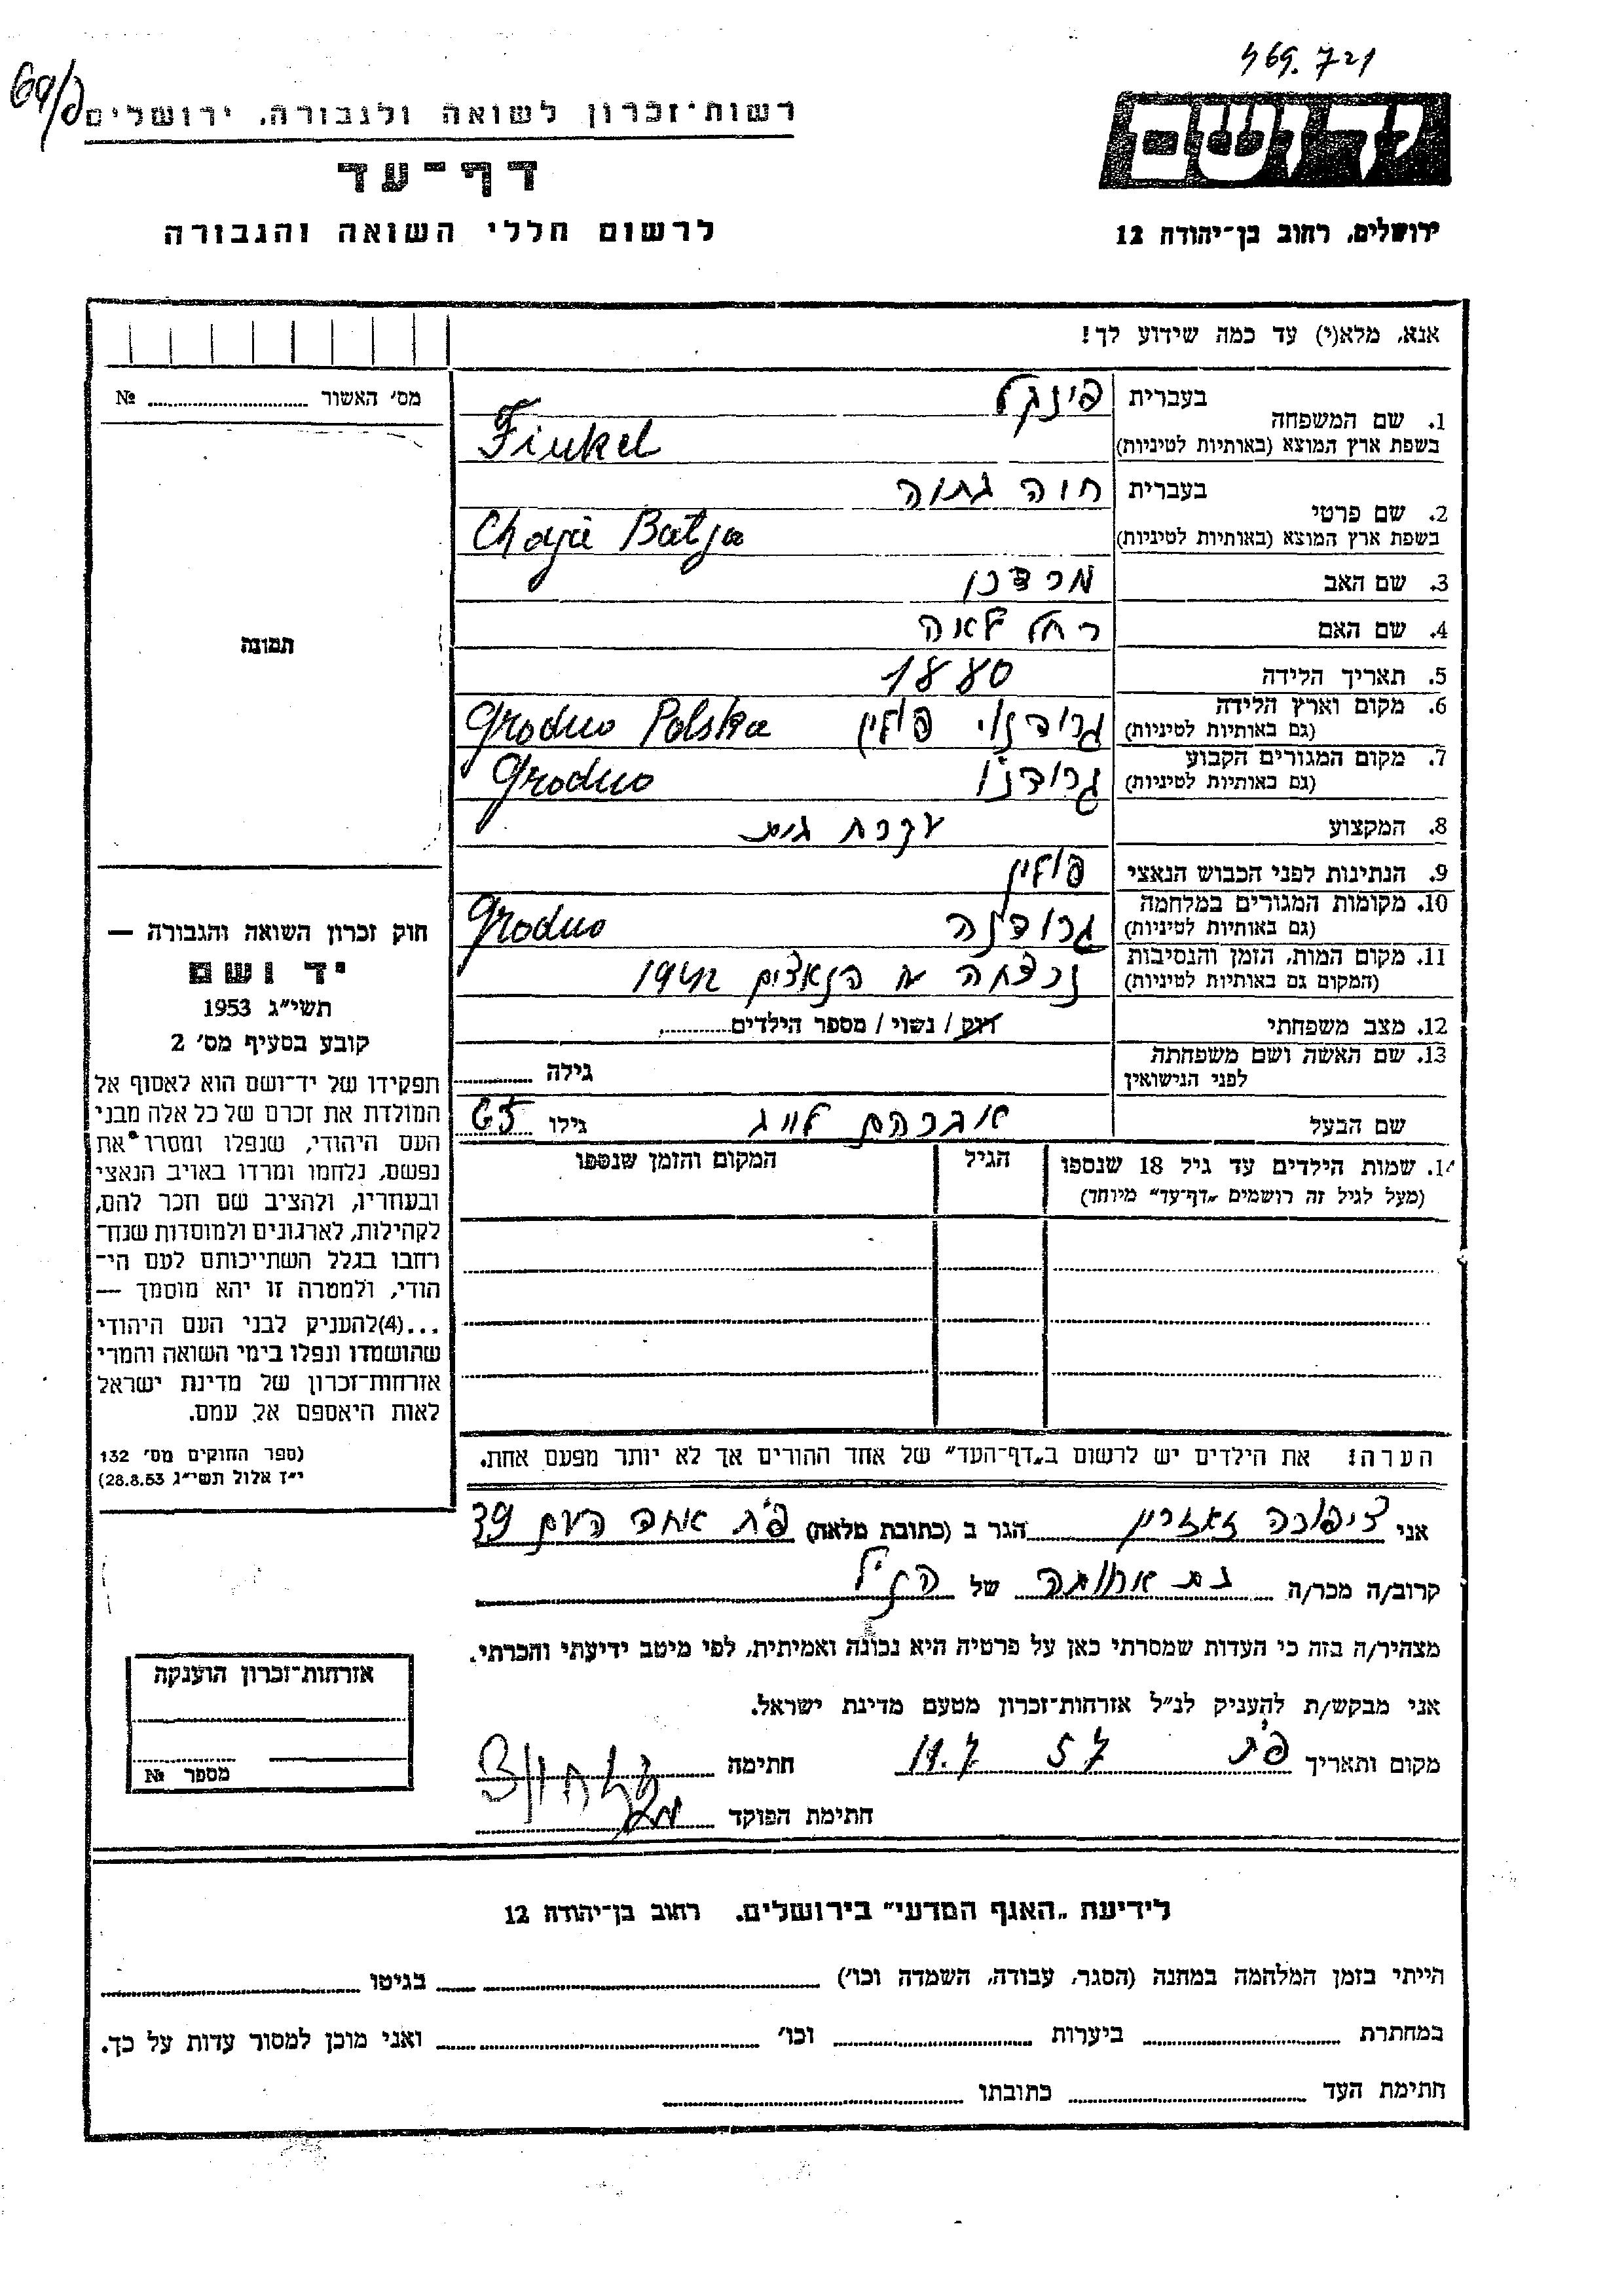 469.721
69/
רשות־זכרון לשואה ולגבורה, ירושלים
יד ושם
דף־עד
לרשום חללי השואה והגבורה
ירושלים, רחוב בן־יהודה 12
אנא, מלא(י) עד כמה שידוע לך!
מס' האשור № ........
בעברית פינקל
1. שם המשפחה
בשפת ארץ המוצא (באותיות לטיניות) Finkel
בעברית חיה בתיה
2. שם פרטי
בשפת ארץ המוצא (באותיות לטיניות) Chaja Batja
3. שם האב מרדכי
4. שם האם רחל לאה
5. תאריך הלידה 1880
6. מקום וארץ הלידה
(גם באותיות לטיניות) גרודנו פולין Grodno Polska
7. מקום המגורים הקבוע
(גם באותיות לטיניות) גרודנו Grodno
8. המקצוע עקרת בית
9. הנתינות לפני הכבוש הנאצי פולין
10. מקומות המגורים במלחמה
(גם באותיות לטיניות) גרודנה Grodno
11. מקום המות, הזמן והנסיבות
(המקום גם באותיות לטיניות) נרצחה ע הנאצים 1942
12. מצב משפחתי רווק / נשוי / מספר הילדים........
13. שם האשה ושם משפחתה
לפני הנישואין גילה ........
שם הבעל אברהם גילו 65
14. שמות הילדים עד גיל 18 שנספו הגיל המקום והזמן שנספו
(מעל לגיל זה רושמים „דף־עד" מיוחד)
הערה: את הילדים יש לרשום ב„דף־העד" של אחד ההורים אך לא יותר מפעם אחת.
תמונה
חוק זכרון השואה והגבורה —
יד ושם
תשי״ג 1953
קובע בסעיף מס' 2
תפקידו של יד־ושם הוא לאסוף אל
המולדת את זכרם של כל אלה מבני
העם היהודי, שנפלו ומסרו את
נפשם, נלחמו ומרדו באויב הנאצי
ובעוזריו, ולהציב שם וזכר להם,
לקהילות, לארגונים ולמוסדות שנח־
רבו בגלל השתייכותם לעם הי־
הודי, ולמטרה זו יהא מוסמך —
...(4)להעניק לבני העם היהודי
שהושמדו ונפלו בימי השואה והמרי
אזרחות־זכרון של מדינת ישראל
לאות היאספם אל עמם.
(ספר החוקים מס' 132
י״ז אלול תשי״ג 28.8.53)
אני ציפורה הגר ב (כתובת מלאה) פ״ת אחד העם 39
קרוב/ה מכר/ה בת אחותה של הנ״ל
מצהיר/ה בזה כי העדות שמסרתי כאן על פרטיה היא נכונה ואמיתית, לפי מיטב ידיעתי והכרתי.
אני מבקש/ת להעניק לנ״ל אזרחות־זכרון מטעם מדינת ישראל.
מקום ותאריך פ״ת 57 11.7 חתימה
חתימת הפוקד
אזרחות־זכרון הוענקה
מספר №
לידיעת „האגף המדעי" בירושלים, רחוב בן־יהודה 12
הייתי בזמן המלחמה במחנה (הסגר, עבודה, השמדה וכו') ........ בגיטו ........
במחתרת ........ ביערות ........ וכו' ........ ואני מוכן למסור עדות על כך.
חתימת העד ........ כתובתו ........